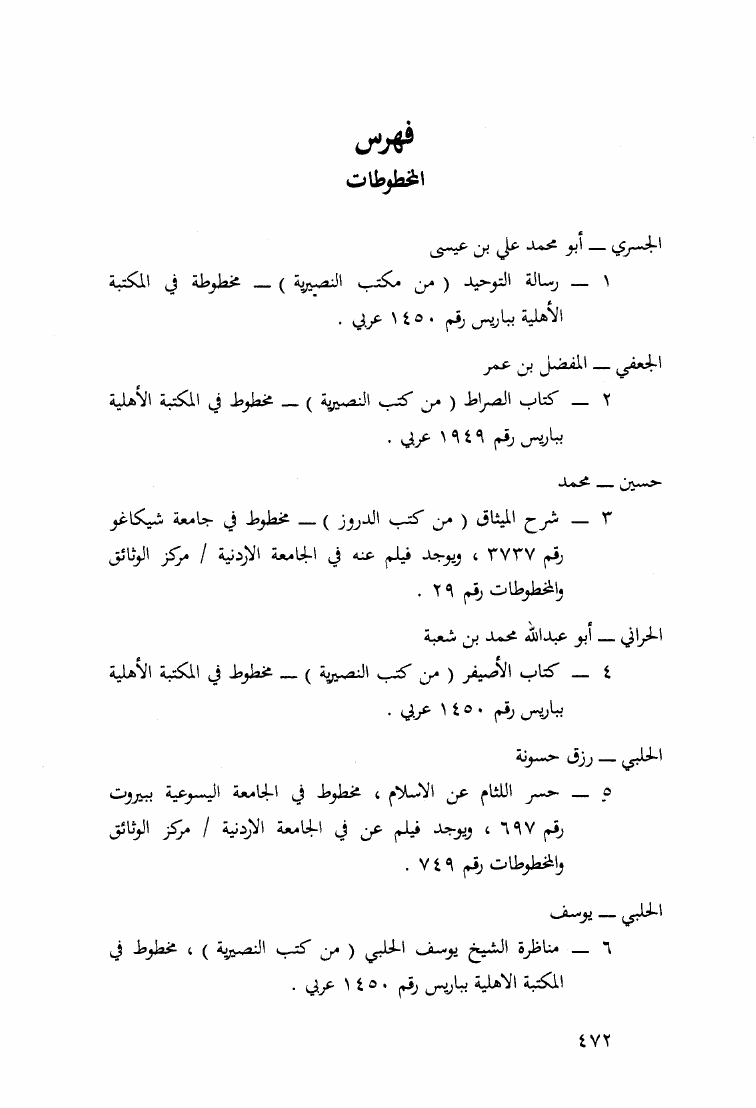 فهرس
المخطوطات
الجسري — أبو محمد علي بن عيسى
١ — رسالة التوحيد ( من مكتب النصيرية ) — مخطوطة في المكتبة
الأهلية بباريس رقم ١٤٥٠ عربي .
الجعفي — المفضل بن عمر
٢ — كتاب الصراط ( من كتب النصيرية ) — مخطوط في المكتبة الأهلية
بباريس رقم ١٩٤٩ عربي .
حسين — محمد
٣ — شرح الميثاق ( من كتب الدروز ) — مخطوط في جامعة شيكاغو
رقم ٣٧٣٧ ، ويوجد فيلم عنه في الجامعة الاردنية / مركز الوثائق
والمخطوطات رقم ٢٩ .
الحراني — أبو عبدالله محمد بن شعبة
٤ — كتاب الأصيفر ( من كتب النصيرية ) — مخطوط في المكتبة الأهلية
بباريس رقم ١٤٥٠ عربي .
الحلبي — رزق حسونة
٥ — حسر اللثام عن الاسلام ، مخطوط في الجامعة اليسوعية ببيروت
رقم ٦٩٧ ، ويوجد فيلم عن في الجامعة الاردنية / مركز الوثائق
والمخطوطات رقم ٧٤٩ .
الحلبي — يوسف
٦ — مناظرة الشيخ يوسف الحلبي ( من كتب النصيرية ) ، مخطوط في
المكتبة الاهلية بباريس رقم ١٤٥٠ عربي .
٤٧٢